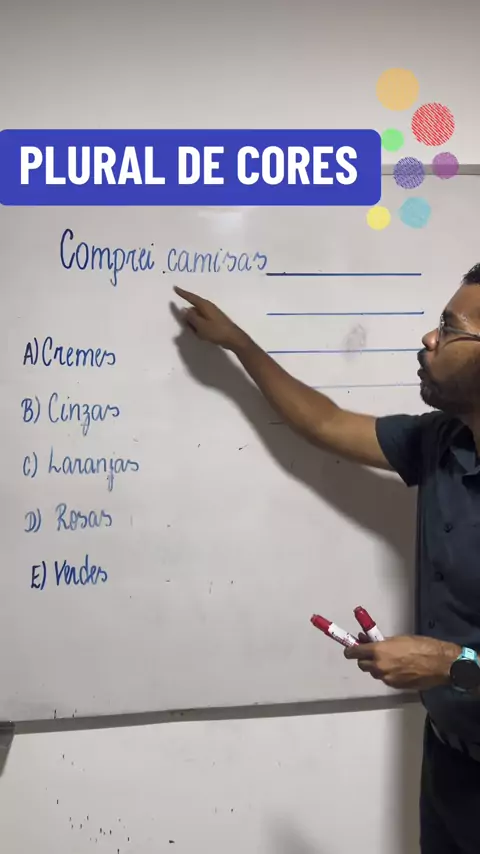 PLURAL DE CORES
Comprei camisas
A) Cremes
B) Cinzas
C) Laranjas
D) Rosas
E) Verdes